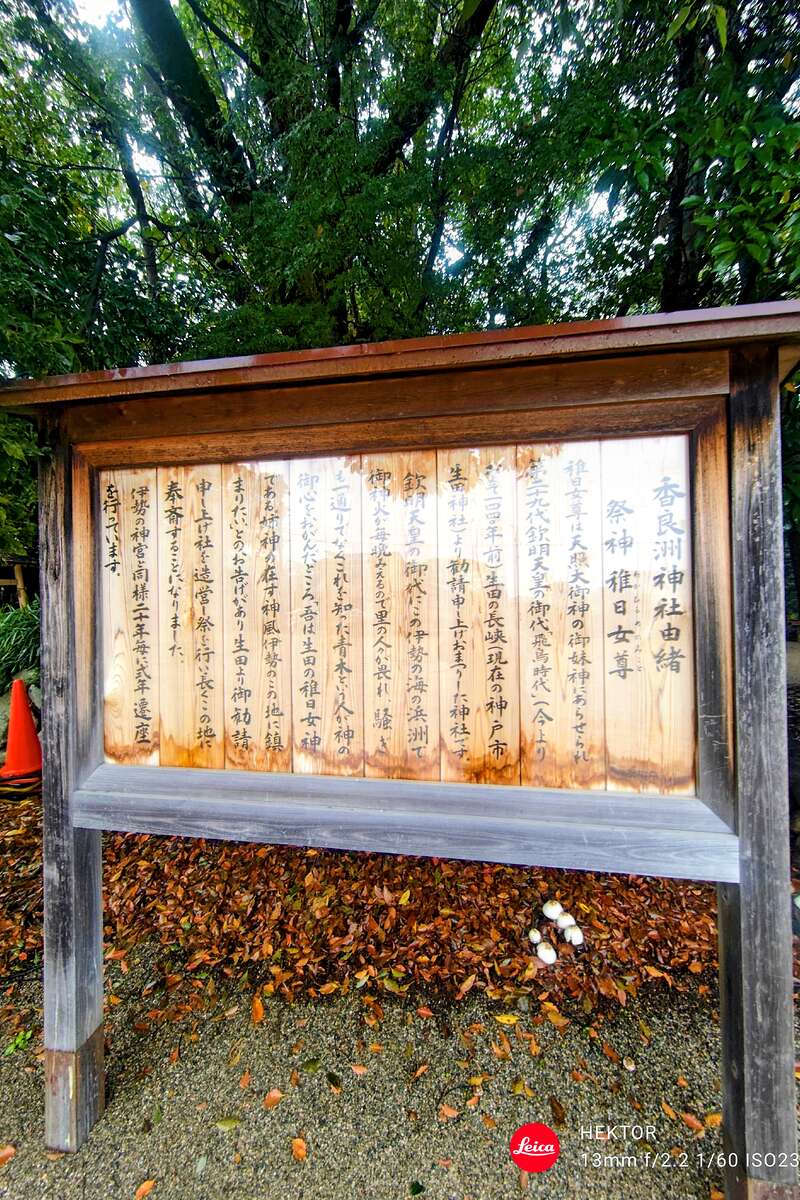 香良洲神社由緒
祭神 稚日女尊
稚日女尊は天照大御神の御妹神にあらせられ
第二十九代欽明天皇の御代(飛鳥時代)(今より
年前)生田の長峡(現在の神戸市
生田神社)より勧請申し上げおまつりした神社です。
欽明天皇の御代にこの伊勢の海の浜洲で
御神火が毎晩みえるので里の人が畏れ騒ぎ
通りでなくこれを知った青木という人が神の
御心をおかんだところ「吾は生田の稚日女神
である姉神の在す神風伊勢のこの地に鎮
まりたい」とのお告げがあり生田より御勧請
申し上げ社を造営し祭を行い長くこの地に
奉斎することになりました。
伊勢の神宮と同様二十年毎に式年遷座
を行っています。
Leica
HEKTOR
13mm f/2.2 1/60 ISO23